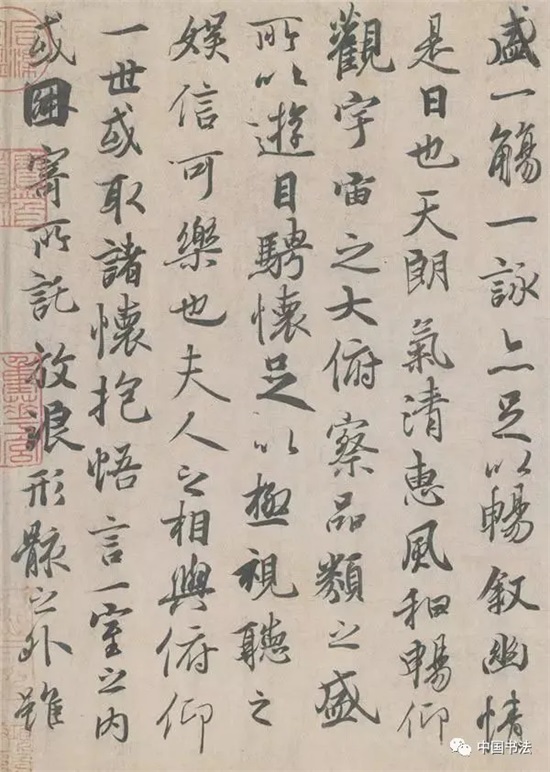 盛一觴一詠亦足以暢叙幽情
是日也天朗氣清惠風和暢仰
觀宇宙之大俯察品類之盛
所以遊目騁懷足以極視聽之
娛信可樂也夫人之相與俯仰
一世或取諸懷抱悟言一室之内
或因寄所託放浪形骸之外雖
中国书法